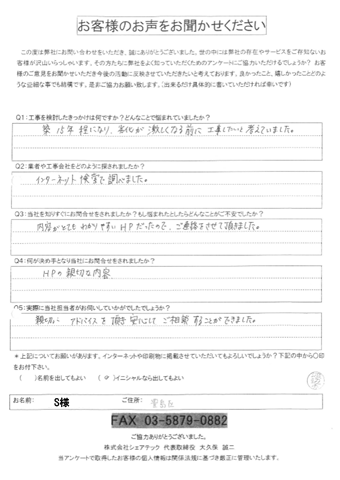 お客様のお声をお聞かせください
この度は弊社にお問い合わせをいただき、誠にありがとうございました。世の中には弊社の存在やサービスをご存知ないお
客様が沢山いらっしゃいます。その方たちに弊社をよく知っていただくためのアンケートにご協力いただけるでしょうか？お
客様のご意見をお聞かせいただき今後の活動に反映させていただきたいと考えております。良かったこと、嬉しかったことどのよ
うな些細な事でも結構です。是非ご協力お願い致します。(出来るだけ具体的に書いていただければ幸いです)
Q1:工事を検討したきっかけは何ですか？どんなことで悩まれていましたか？
築15年程になり、劣化が激しくなる前に工事したいと考えていました。
Q2:業者や工事会社をどのように探されましたか？
インターネット検索で調べました。
Q3:当社を知りすぐにお問合せをされましたか？もし悩まれたとしたらどんなことがご不安でしたか？
内容がとてもわかりやすいHPだったので、ご連絡させて頂きました。
Q4:何が決め手となり当社にお問合せをされましたか？
HPの親切な内容
Q5:実際に当社担当者がお伺いしていかがでしたでしょうか？
親切にアドバイスを頂き安心してご相談することができました。
*上記についてお願いがあります。インターネットや印刷物に掲載させていただいてもよろしいでしょうか？下記の中から○印
をお付下さい。
(　)名前を出してもよい　(○)イニシャルなら出してもよい
お名前: S様　ご住所:
FAX 03-5879-0882
ご協力ありがとうございました。
株式会社シェアテック 代表取締役 大久保 誠二
当アンケートで取得したお客様の個人情報は関係法規に基づき厳正に管理いたします。